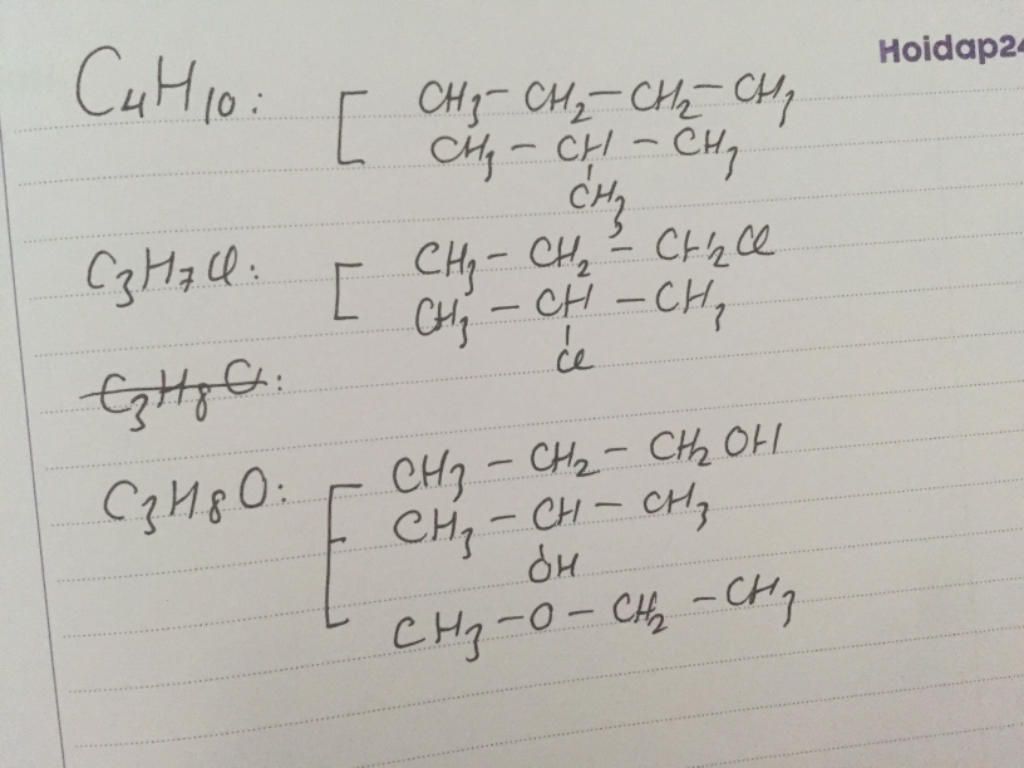 Hoidap24
C4H10: [ CH3 - CH2 - CH2 - CH3
CH3 - CH - CH3
CH3
C3H7Cl: [ CH3 - CH2 - CH2Cl
CH3 - CH - CH3
Cl
C3H8O:
C3H8O: [ CH3 - CH2 - CH2OH
CH3 - CH - CH3
OH
CH3 - O - CH2 - CH3